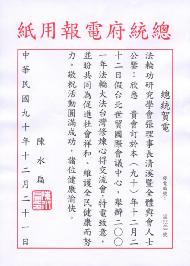 總統府電報用紙
總統賀電
法輪功研究學會張理事長清溪暨全體與會人士
公鑒：欣悉　貴會訂於本（九十）年十二月二
十二日假台北世貿國際會議中心，舉辦二００
一年法輪大法台灣修煉心得交流會，特電致意，
並盼共同為促進社會祥和、維護全民健康而努
力。敬祝活動圓滿成功，諸位健康愉快。
陳水扁
中華民國九十年十二月二十一日